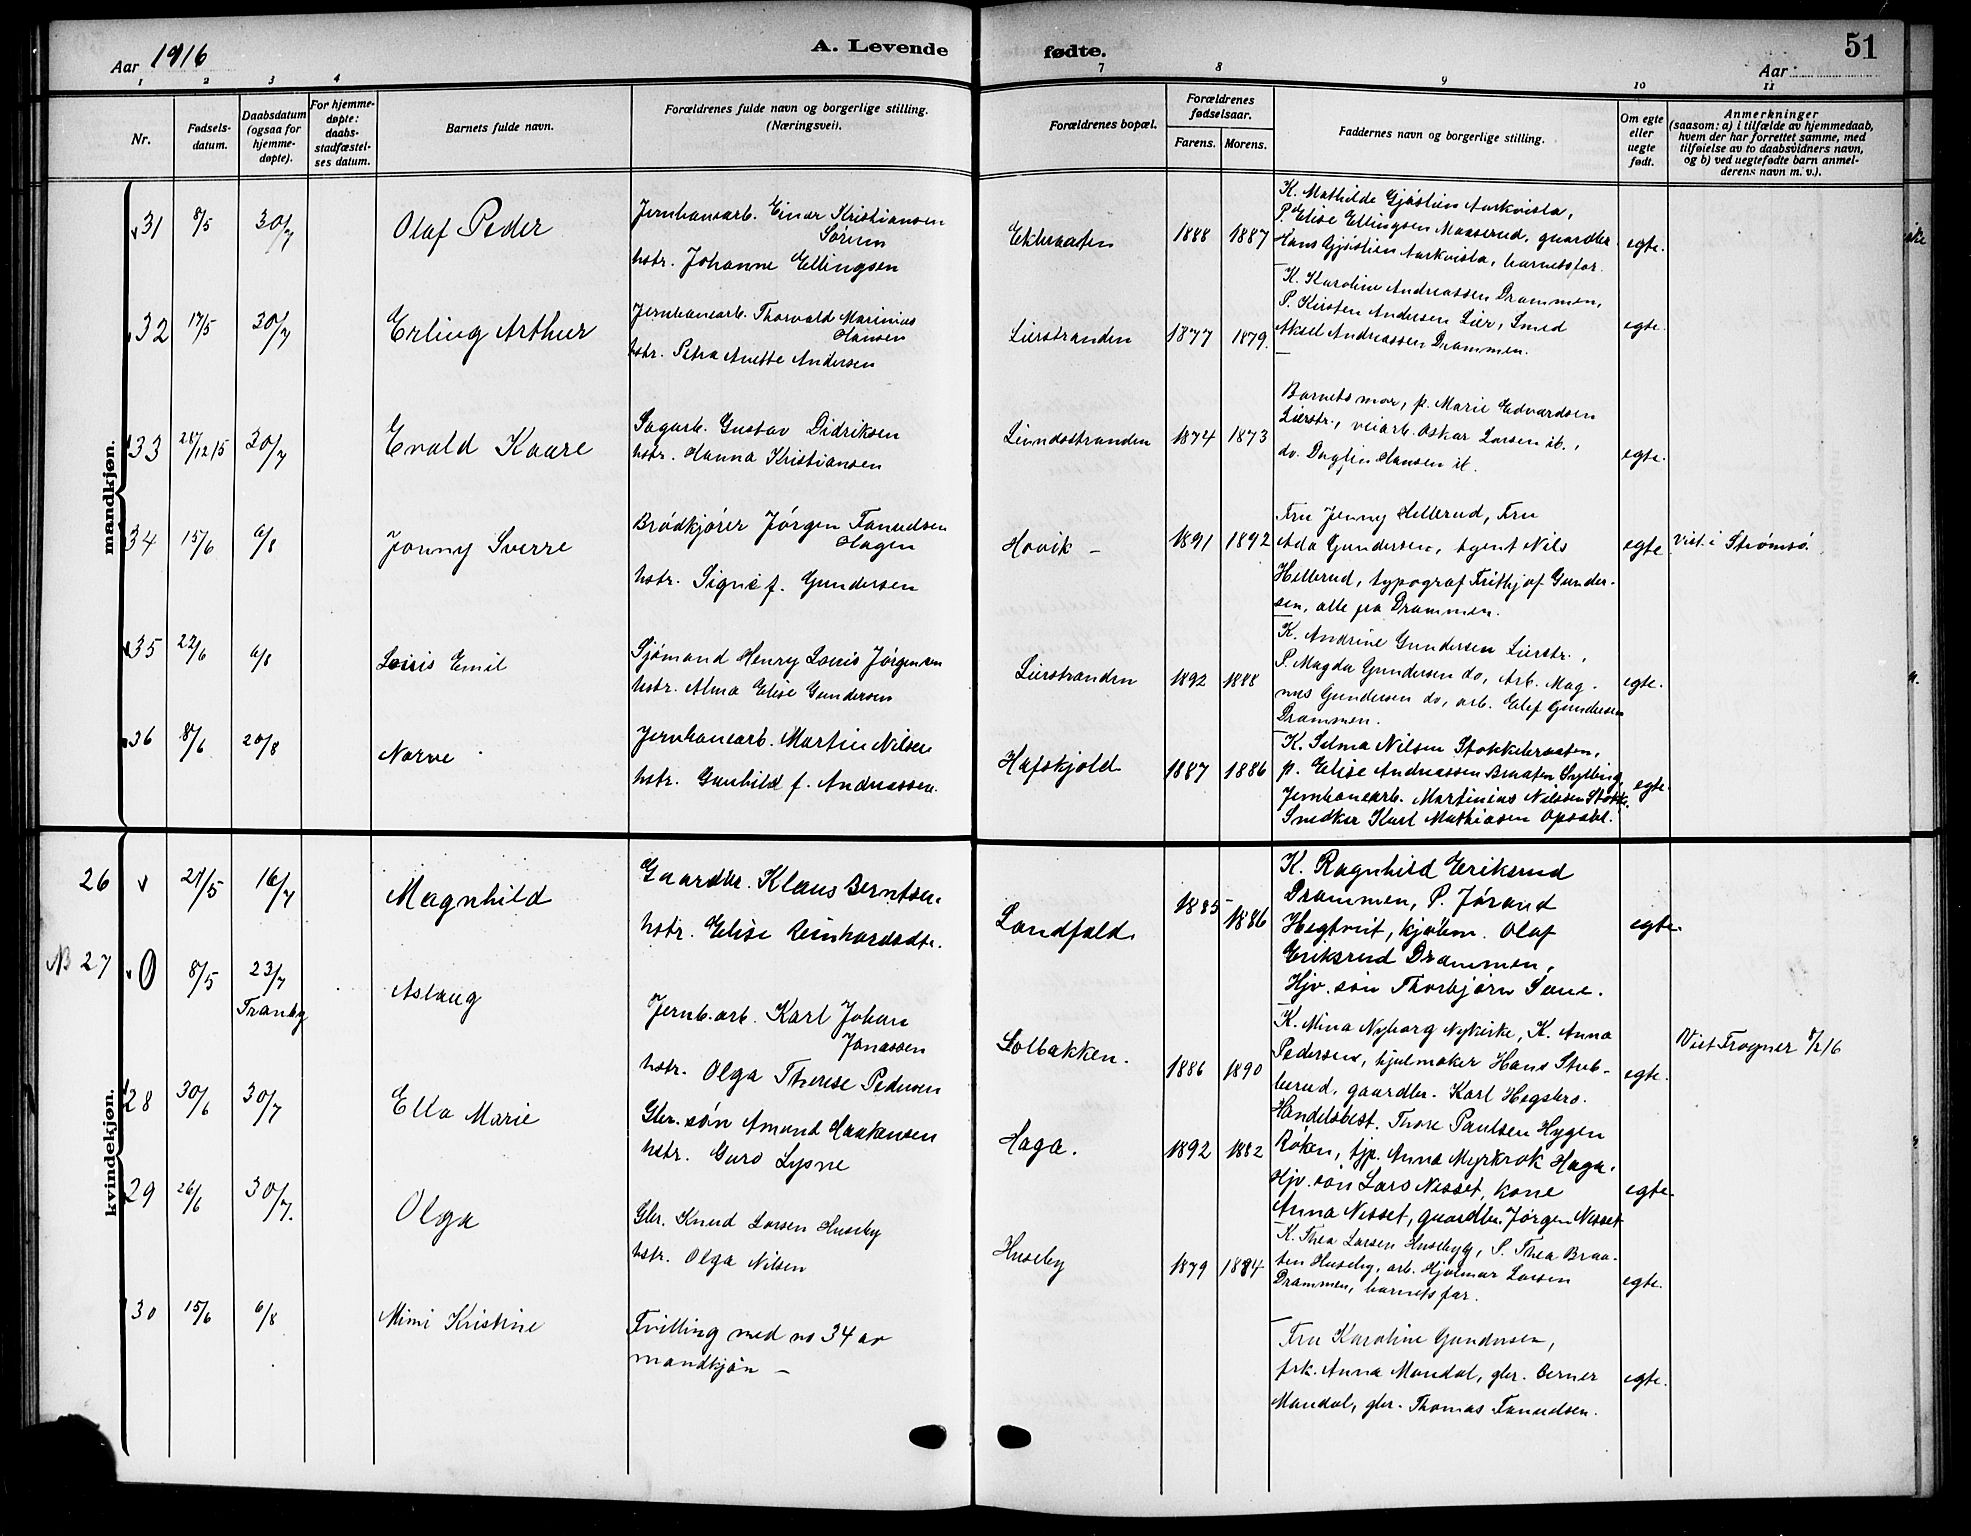 Aar 1916
A. Levende
fødte.
51
Aar
1 2 3 4 7 8 9 10 11
Nr.
Fødsels-
datum.
Daabsdatum
(ogsaa for
hjemme-
døpte).
For hjemme-
døpte:
daabs-
stadfæstel-
ses datum.
Barnets fulde navn.
Forældrenes fulde navn og borgerlige stilling.
(Næringsvei).
Forældrenes bopæl.
Forældrenes
fødselsaar.
Farens. Morens.
Faddernes navn og borgerlige stilling.
Om egte
eller
uegte
født.
Anmerkninger
(saasom: a) i tilfælde av hjemmedaab,
hvem der har forrettet samme, med
tilføielse av to daabsvidners navn,
og b) ved uegtefødte barn anmel-
derens navn m. v.).
mandkjøn.
31 8/5 30/7 Olaf Peder
Jernbanearb. Einar Kristiansen
Sørum
hstr. Johanne Ellingsen
Ekbraaten 1888 1887
K. Mathilde Gjøstien Aarkvisla,
P. Elise Ellingsen Maaserud, gaardbr
Hans Gjøstien Aarkvisla, barnets far.
egte.
32 17/5 30/7 Erling Arthur
Jernbanearb. Thorvald Marinius
Hansen
hstr. Petra Anette Andersen
Lierstranden 1877 1879.
K. Karoline Andreassen Drammen,
P. Kirsten Andersen Lier, Smed
Aksel Andreassen Drammen.
egte.
33 28/12 15 30/7 Evald Kaare
Sagarb. Gustav Didriksen
hstr. Hanna Kristiansen
1874 1873
Barnets mor, p. Marie Edvardsen
Lierstr., veiarb. Oskar Larsen ib.,
do. Dagfin Hansen ib.
egte.
34 15/6 6/8 Jonny Sverre
Brødkjører Jørgen Tanudsen
Hagen
hstr. Signe f. Gundersen
Hovik – 1891 1892
Fru Jenny Hellerud, Fru
Ada Gundersen, Agent Nils
Hellerud, typograf Frithjof Gunder-
sen, alle på Drammen.
egte
Viet i Strømsø.
35 22/6 6/8 Louis Emil
Sjømand Henry Louis Jørgensen
hstr. Alma Elise Gundersen
Lierstranden 1892 1888
K. Andrine Gundersen Lierstr.,
P. Magda Gundersen do, Arb. Mag-
nus Gundersen do, arb. Elef Gundersen
Drammen.
egte.
36 8/6 20/8 Narve
Jernbanearb. Martin Nilsen
hstr. Gunhild f. Andreassen.
Hafskjold 1887 1886
K. Selma Nilsen Stokkebraaten,
p. Elise Andreassen Braaten Sylling,
Jernbanearb. Martinius Nilsen Stokk.
Snedker Karl Mathiasen Opsahl.
egte.
kvindekjøn.
26 21/5 16/7 Magnhild
Gaardbr. Klaus Berntsen
hstr. Elise Reinhardsdtr.
Landfald 1885 1886
K. Ragnhild Eriksrud
Drammen, P. Jørand
Hegtveit, kjøbm. Olaf
Eriksrud Drammen,
Hjv. søn Thorbjørn Sone.
egte.
NB 27 8/5 23/7
Tranby
Aslaug
Jernb.arb. Karl Johan
Jonassen
hstr. Olga Therese Pedersen
Solbakken. 1886 1890
K. Mina Nyborg Nykirke, K. Anna
Pedersen, hjulmaker Hans Stub-
berud, gaardbr. Karl Hegsbro.
egte.
Viet Frogner 8/2 16
28 30/6 30/7 Ella Marie
Gbr. søn Amund Haakensen
hstr. Guro Lysne
Haga. 1892 1882
Handelsbest. Thore Paulsen Hygen
Røken, tjp. Anna Myrkrok Haga.
Hjv. søn Lars Nesset, kone
Anna Nesset, gaardbr. Jørgen Nesset
egte.
29 26/6 30/7. Olga
Gbr. Knud Larsen Huseby
hstr. Olga Nilsen
Huseby 1879 1884
K. Thea Larsen Huseby, P. Thea Braa-
ten Huseby, arb. Hjalmar Larsen
Drammen, barnets far.
egte.
30 15/6 6/8 Mimi Kristine
Tvilling med no 34 av
mandkjøn –
Fru Karoline Gundersen,
frk. Anna Mandal, gbr. Berner
Mandal, gbr. Thomas Tanudsen.
egte.